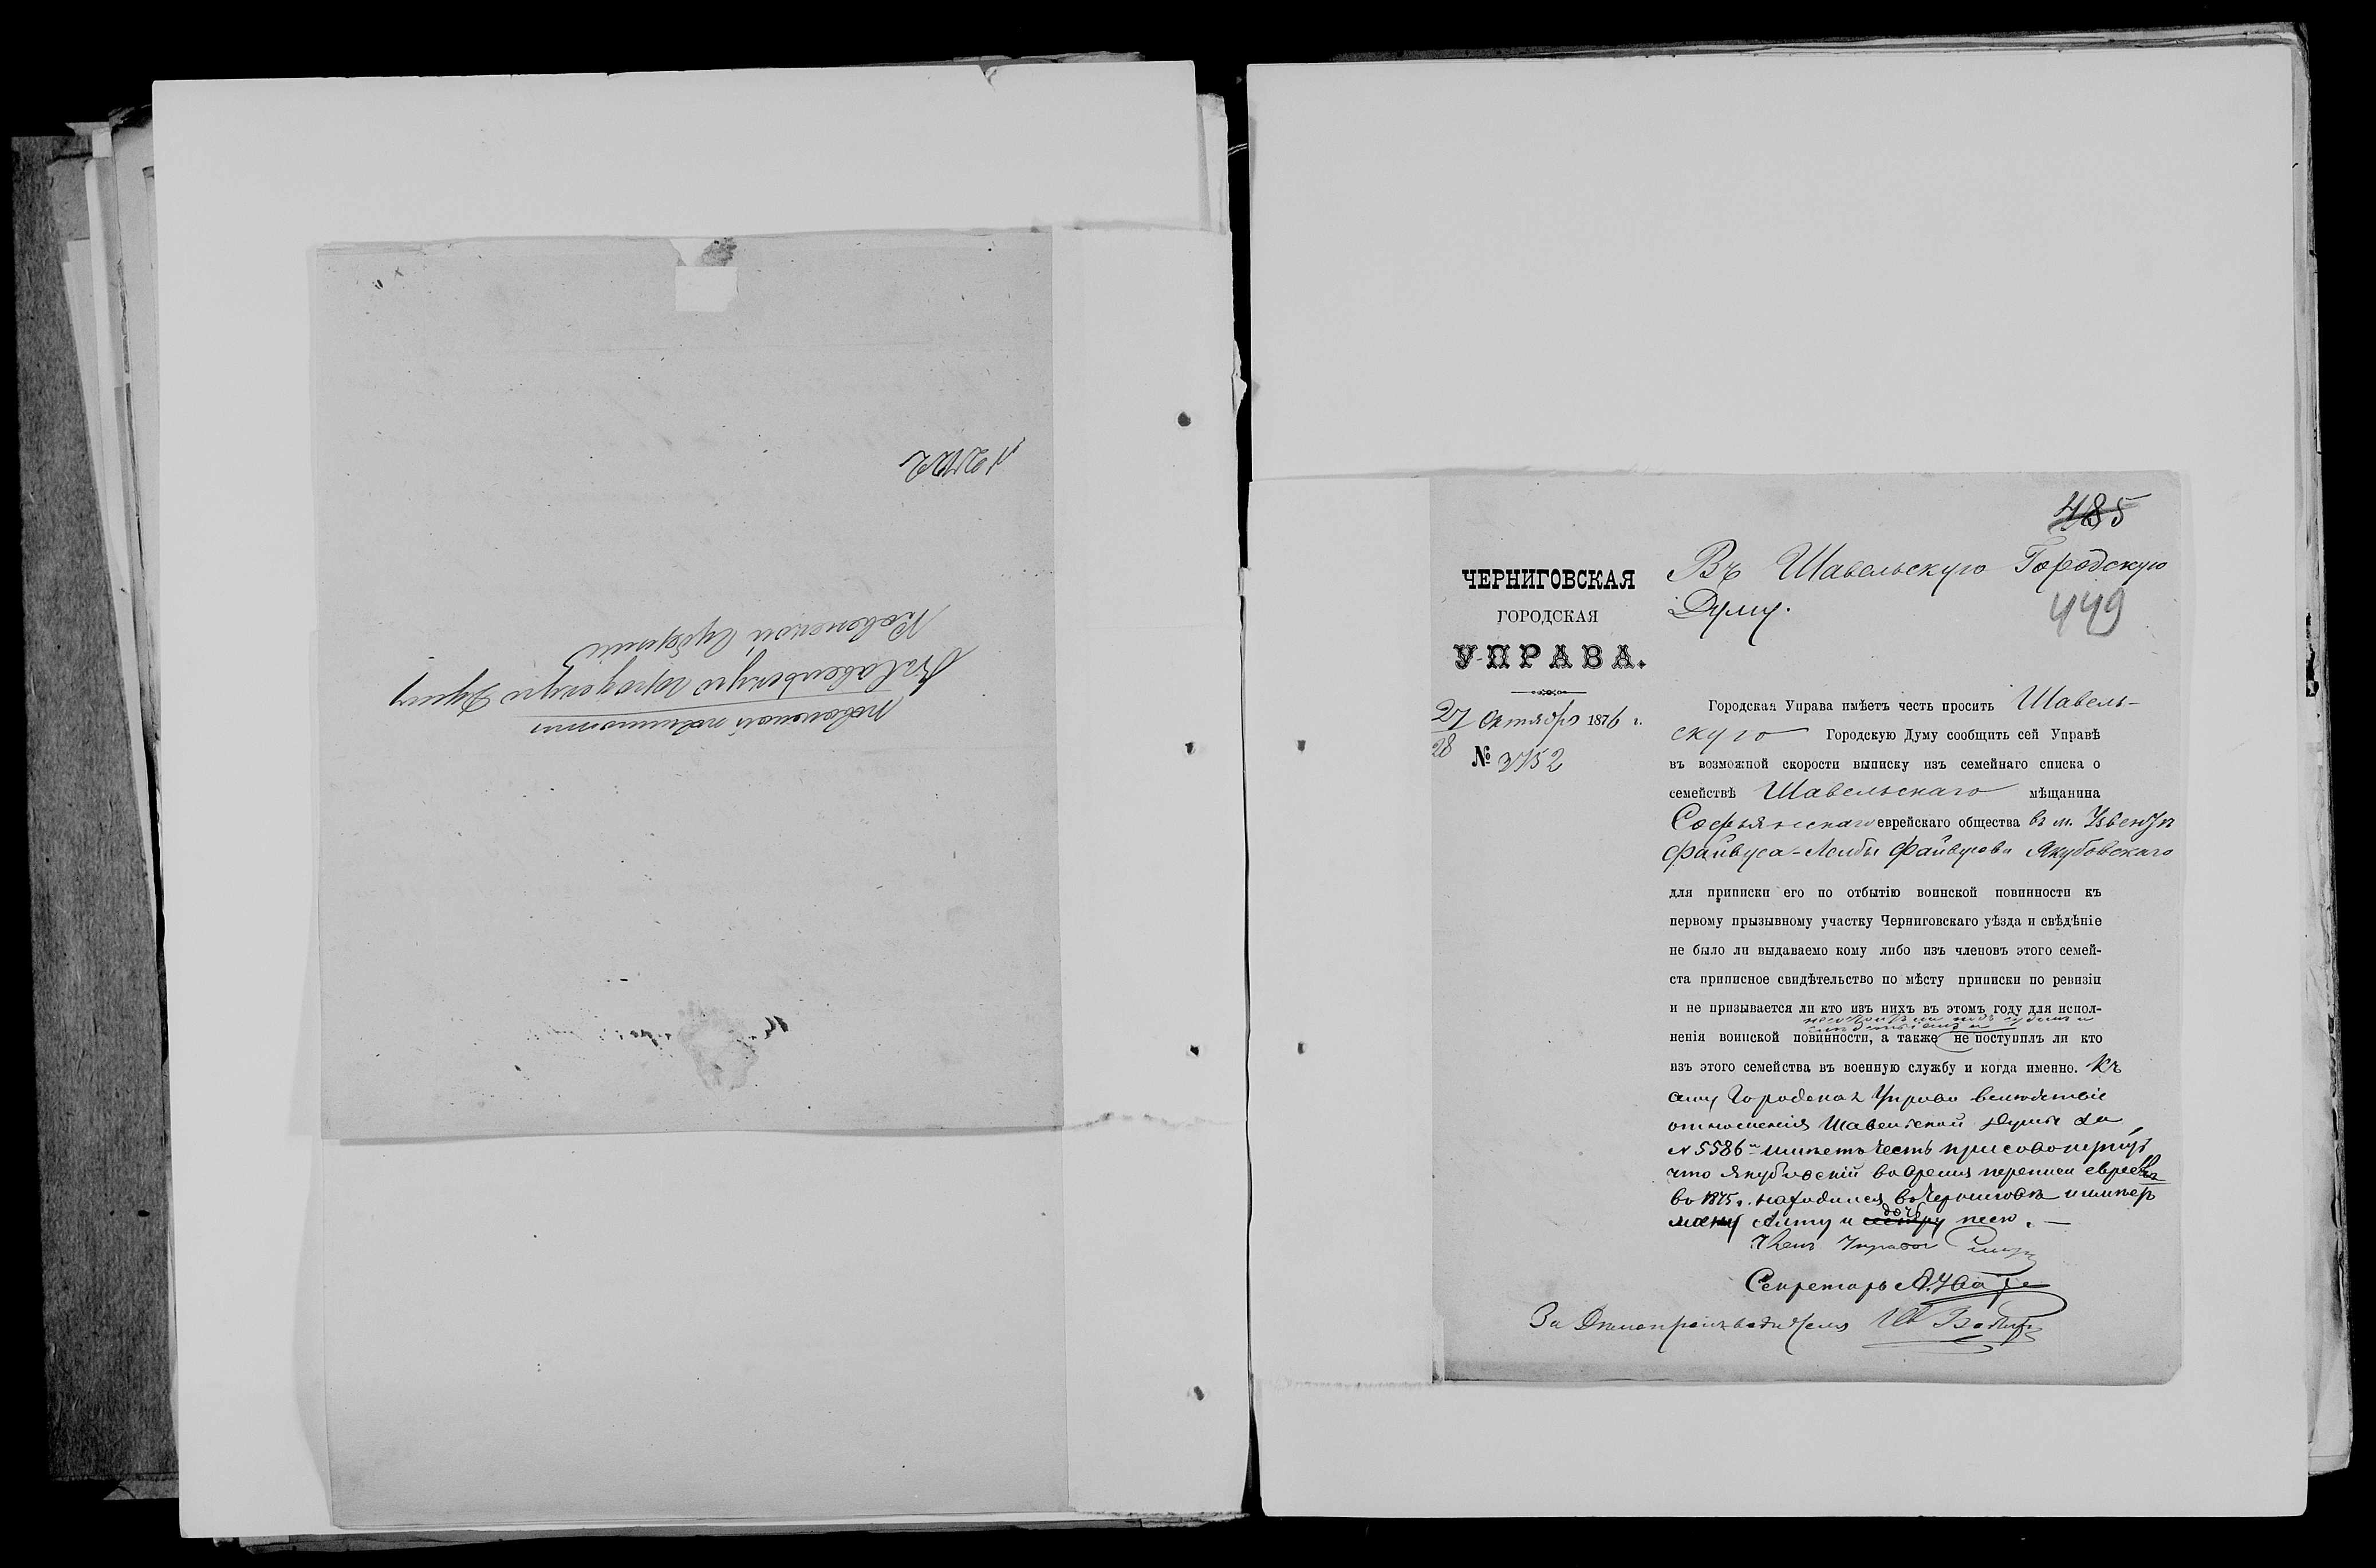 воинской повинности
Въ Шавельскую городскую Думу
Ковенской Губерніи
485
449
ЧЕРНИГОВСКАЯ
ГОРОДСКАЯ
УПРАВА.
27 Октября 1876 г.
28
№ 3152
Въ Шавельскую Городскую
Думу.
Городская Управа имѣетъ честь просить Шавель-
скую Городскую Думу сообщить сей Управѣ
въ возможной скорости выписку изъ семейнаго списка о
семействѣ Шавельскаго мѣщанина
еврейскаго общества въ м.
Файвуса-Лейбы Файвусова Якубовскаго
для приписки его по отбытію воинской повинности къ
первому призывному участку Черниговскаго уѣзда и свѣдѣніе
не было ли выдаваемо кому либо изъ членовъ этого семей-
ста приписное свидѣтельство по мѣсту приписки по ревизіи
и не призывается ли кто изъ нихъ въ этомъ году для испол-
ненія воинской повинности, а также не поступилъ ли кто
изъ этого семейства въ военную службу и когда именно. Къ
сему Городская Управа вслѣдствіе
отношенія Шавельской Думы за
№ 5586 имѣетъ честь присовокупить
что Якубовскій во время переписи евреевъ
въ 1875 г. находился въ Черниговѣ и имѣетъ
и дочь
Членъ Управы
Секретарь
За Дѣлопроизводителя